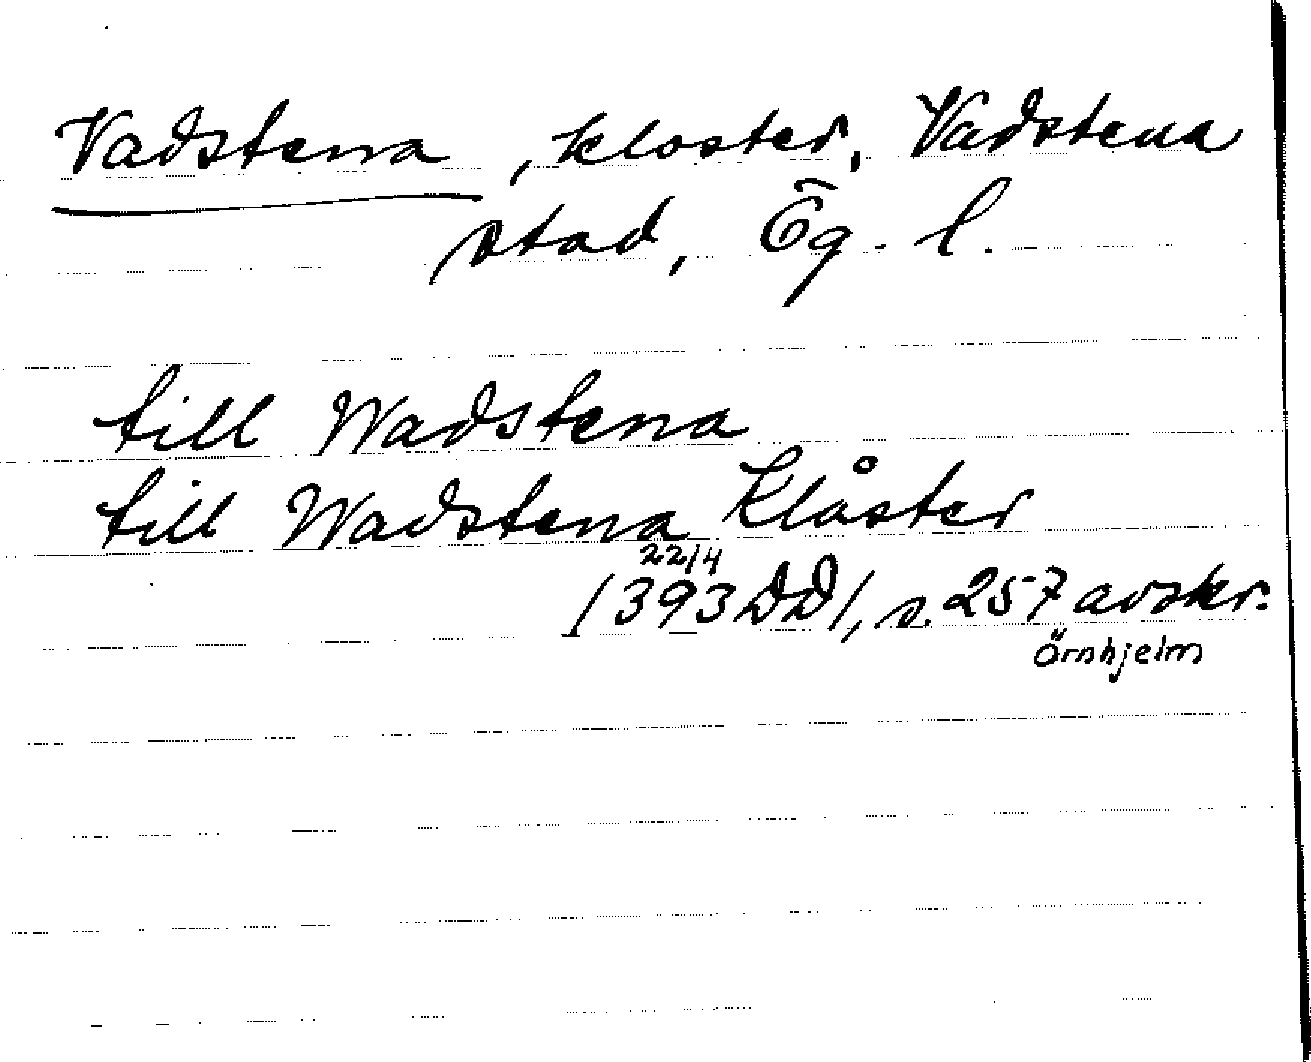 Vadstena, kloster, Vadstena
stad, Ög. l.
till Wadstena
till Wadstena Klåster
22/4
1393 DD1, s. 257 avskr.
Örnhjelm